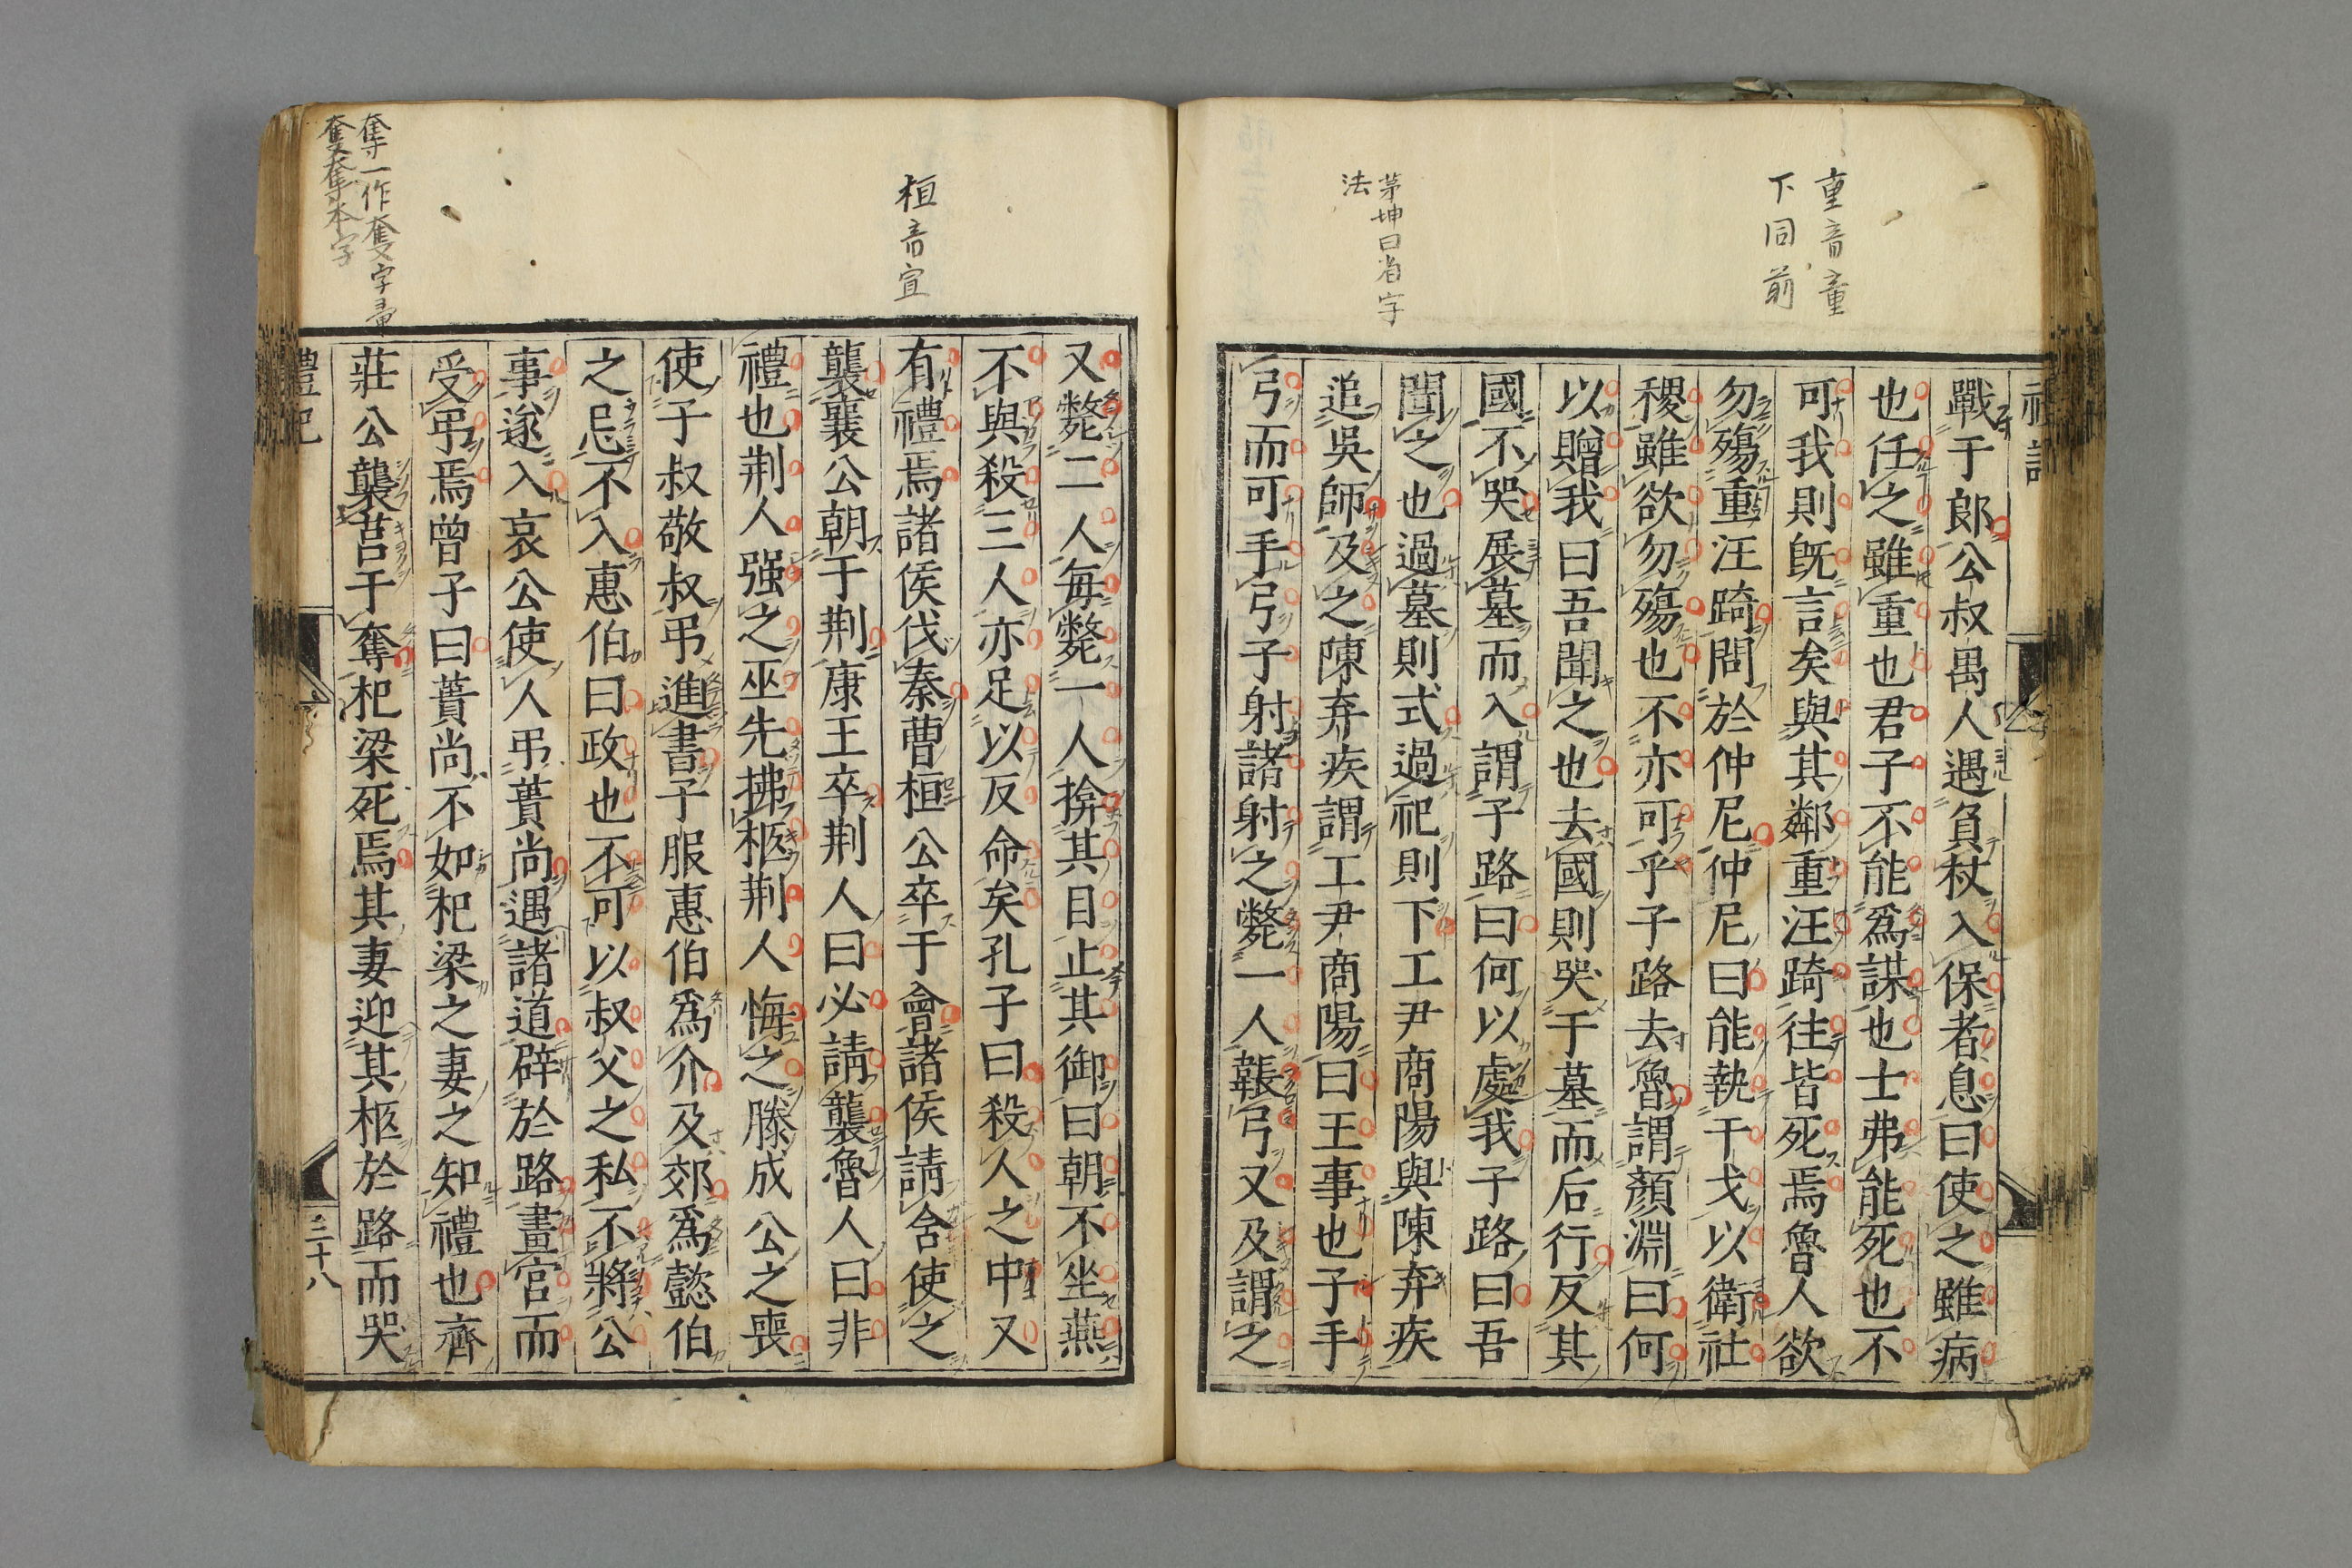 重音童
下同前
茅坤曰省字
法
戰于郎公叔禺人遇負杖入保者息曰使之雖病
也任之雖重也君子不能爲謀也士弗能死也不
可我則既言矣與其鄰重汪踦往皆死焉魯人欲
勿殤重汪踦問於仲尼仲尼曰能執干戈以衛社
稷雖欲勿殤也不亦可乎子路去魯謂顏淵曰何
以贈我曰吾聞之也去國則哭于墓而后行反其
國不哭展墓而入謂子路曰何以處我子路曰吾
聞之也過墓則式過祀則下工尹商陽與陳弃疾
追吳師及之陳弃疾謂工尹商陽曰王事也子手
弓而可手弓子射諸射之斃一人韔弓又及謂之
桓音宣
奪一作奞又字彙
奪本字
又斃二人每斃一人揜其目止其御曰朝不坐燕
不與殺三人亦足以反命矣孔子曰殺人之中又
有禮焉諸侯伐秦曹桓公卒于會諸侯請含使之
襲襄公朝于荆康王卒荆人曰必請襲魯人曰非
禮也荆人强之巫先拂柩荆人悔之滕成公之喪
使子叔敬叔弔進書子服惠伯爲介及郊爲懿伯
之忌不入惠伯曰政也不可以叔父之私不將公
事遂入哀公使人弔蕢尚遇諸道辟於路畫宮而
受弔焉曾子曰蕢尚不如杞梁之妻之知禮也齊
莊公襲莒于奪杞梁死焉其妻迎其柩於路而哭
禮記
三十八